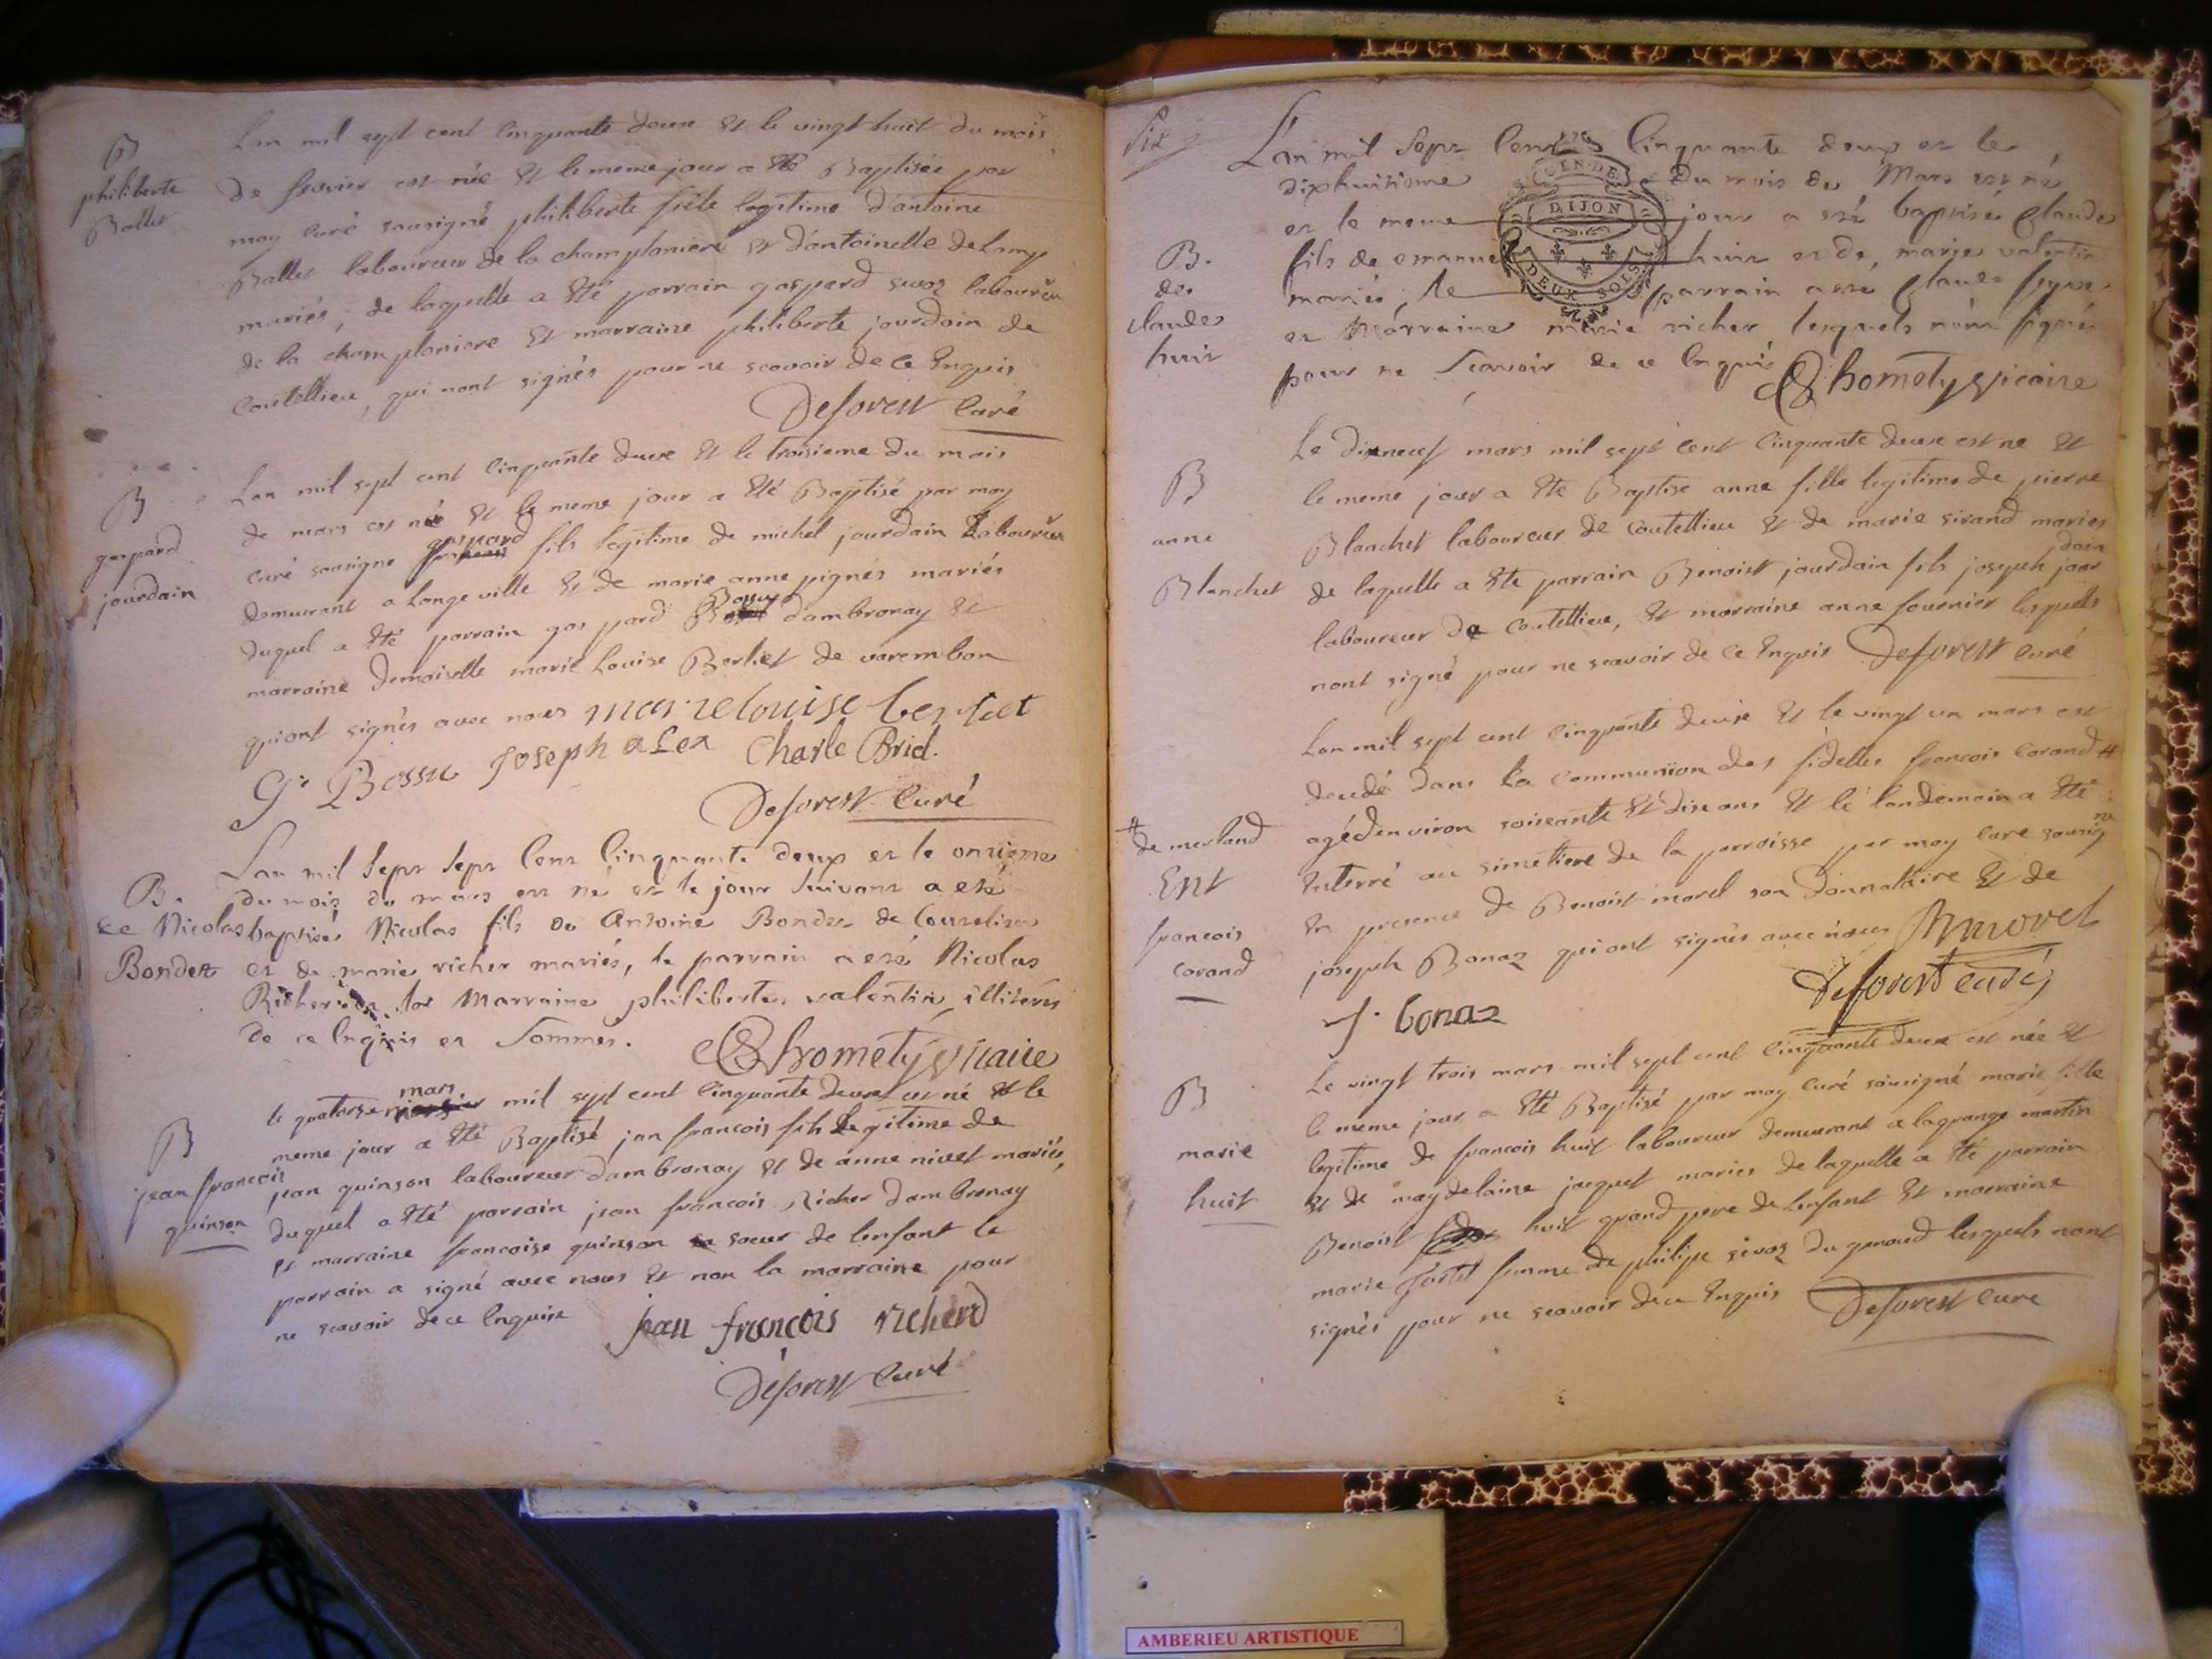 B
philiberte
Ballet
Lan mil sept cent cinquante deux et le vingt huit du mois
de fevrier est née et le meme jour a été Baptisée par
moy curé sousigné philiberte fille legitime d'antoine
Ballet laboureur de la champloniere et d'antoinette de
mariés, de laquelle a été parrain gaspard sivoz laboureur
de la champloniere et marraine philiberte jourdain de
coutellieu, qui nont signés pour ne scavoir de ce Enquis
Deforest Curé
B
gaspard
jourdain
Lan mil sept cent cinquante deux et le troisieme du mois
de mars est né et le meme jour a été Baptisé par moy
curé sousigne gaspard fils legitime de michel jourdain Laboureur
demeurant a Longeville et de marie anne pignés mariés
duquel a été parrain gaspard Bossu dambronay et
marraine Demoiselle marie Louise Berliet de varembon
qui ont signés avec nous marie louise berliet
G. Bossu Joseph Charle Brid.
Deforest Curé
B.
de Nicolas
Bondet
Lan mil Sept Sept Cent Cinquante deux et le onzieme
du mois de mars est né et le jour suivant a eté
baptisé Nicolas fils de Antoine Bondet de Coutelieu
et de marie richer mariés, le parrain a eté Nicolas
Richer la Marraine philiberte valentin, illiterés
de ce Enquis et Sommés.
Chomety vicaire
B
jean francois
quinson
le quatorse mars mil sept cent cinquante deux est né et le
meme jour a été Baptisé jan francois fils Legitime de
jean quinson laboureur dambronay et de anne nivet mariés,
duquel a été parrain jean francois Richer dambronay
et marraine francoise quinson soeur de lenfant le
parrain a signé avec nous et non la marraine pour
ne scavoir de ce Enquise jean françois richerd
Deforest Curé
Six
L'an mil Sept Cent Cinquante deux et le
dixhuitieme du mois de Mars est né
et le meme jour a eté baptisé Claude
GEN. DE
DIJON
DEUX SOLS
B.
de
claude
huit
fils de emanuel huit et de marie valentin
mariés, le parrain a eté Claude
et Marraine marie richer lesquels n'ont signés
pour ne Scavoir de ce Enquis Chomety vicaire
B
anne
Blanchet
Le dixneuf mars mil sept cent cinquante deux est ne et
le meme jour a été Baptise anne fille legitime de pierre
Blanchet laboureur de coutellieu et de marie sirand mariés
de laquelle a été parrain Benoist jourdain fils joseph jourdain
laboureur de coutellieu, et marraine anne fournier lesquels
nont signé pour ne scavoir de ce Enquis Deforest curé
Lan mil sept cent cinquante deux et le vingt un mars est
decedé dans La communion des fidelles francois Corand #
# de merland
Ent
francois
corand
agé denviron soixante et dix ans et le landemain a été
Enterré au simetiere de la parroisse par moy curé sousigné
En presence de Benoist morel son donnataire et de
joseph Bonaz qui ont signés avec nous B morel
J. bonaz Deforest curé
B
marie
huit
Le vingt trois mars mil sept cent cinquante deux est née et
le meme jour a été Baptisé par moy curé sousigné marie fille
legitime de francois huit laboureur demeurant a lagrange martin
et de magdelaine jacquet mariés de laquelle a été parrain
Benoist huit grand pere de lenfant et marraine
marie fortet femme de philipe sivoz du genoud lesquels nont
signés pour ne scavoir de ce Enquis Deforest curé
AMBERIEU ARTISTIQUE